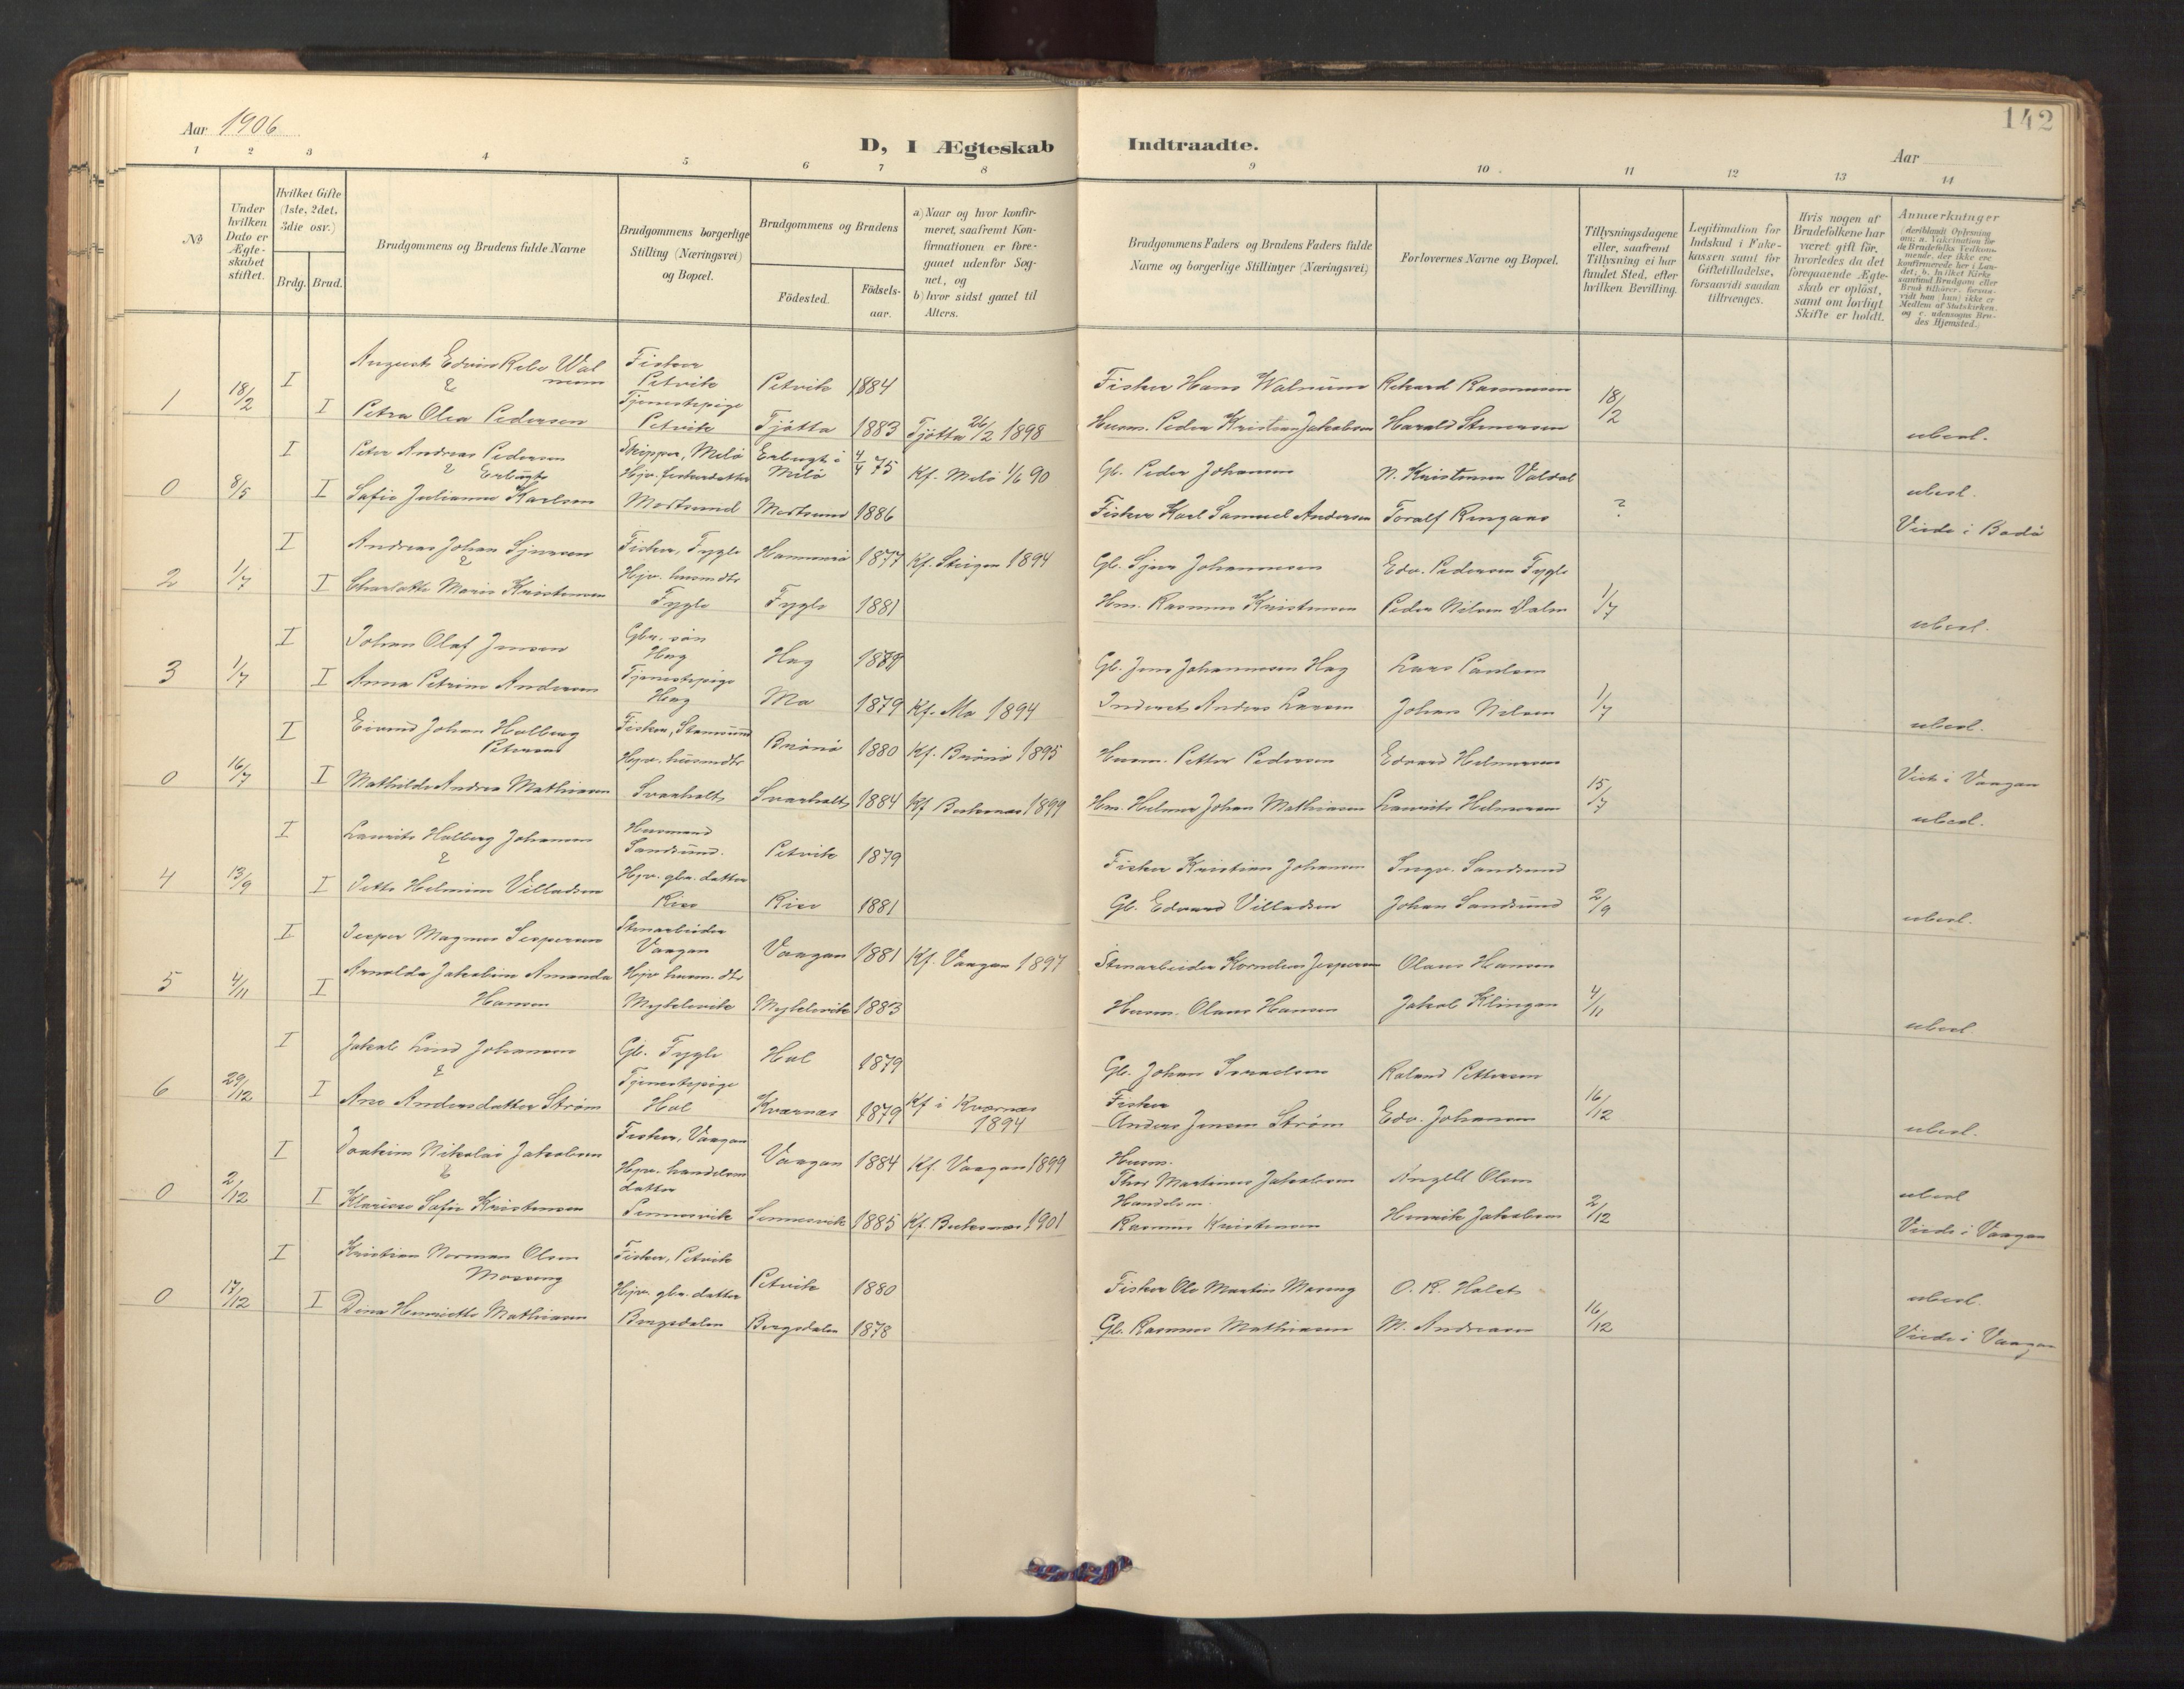 Aar 1906
D, I Ægteskab Indtraadte.
142
Aar
1 2 3 4 5 6 7 8 9 10 11 12 13 14
No
Under hvilken Dato er Ægte-skabet stiftet.
Hvilket Gifte (1ste, 2det, 3die osv.)
Brdg. Brud.
Brudgommens og Brudens fulde Navne
Brudgommens borgerlige Stilling (Næringsvei) og Bopæl.
Brudgommens og Brudens
Födested.
Födsels-aar.
a) Naar og hvor konfir-meret, saafremt Kon-firmationen er fore-gaaet udenfor Sog-net, og
b) hvor sidst gaaet til Alters.
Brudgommens Faders og Brudens Faders fulde Navne og borgerlige Stillinger (Næringsvei)
Forlovernes Navne og Bopæl.
Tillysningsdagene eller, saafremt Tillysning ei har fundet Sted, efter hvilken Bevilling.
Legitimation for Indskud i Fake-kassen samt for Giftetilladelse, forsaavidt saadan tiltrænges.
Hvis nogen af Brudefolkene har været gift før, hvorledes da det foregaaende Ægte-skab er oplöst, samt om lovligt Skifte er holdt.
Anmærkninger (deriblandt Oplysning om: a. Vakcination for de Brudefolks Vedkom-mende, der ikke ere konfirmerede her i Lan-det; b. hvilket Kirke-samfund Brudgom eller Brud tilhører, forsaa-vidt han (hun) ikke er Medlem af Statskirken, og c. udensogns Bru-des Hjemsted.)
1 18/2 I August Edvin Walnum Fisker Petvik Petvik 1884 Fisker Hans Walnum Rikard Rasmussen 18/2
& I Petra Olea Pedersen Tjenestepige Petvik Tjøtta 1883 Tjøtta 26/2 1898 Husm. Peder Kristian Jakobsen Harald Stenersen uberl.
0 8/5 I Peter Andreas Pedersen Skipper, Melø Melö 4/4 75 Kf. Melö 1/6 90 Gl. Peder Johansen N. Kristensen Valdal uberl.
& I Safie Julianne Karlsen Hjv. fiskerdatter Mortsund Mortsund 1886 Fisker Karl Samuel Andersen Toralf ? Viede i Bodö
2 1/7 I Andreas Johan Fisker, Fygle Hammerö 1877 Kf. Steigen 1894 Gl. Johannesen Edv. Pedersen Fygle
& I Charlotte Marie Kristensen Hjv. husmdtr Fygle Fygle 1881 Hm. Rasmus Kristensen Peder Nilsen 1/7 uberl.
3 1/7 I Johan Olaf Jensen Gbr. søn Hag Hag 1879 Gl. Jens Johannesen Hag Lars Paulsen
I Anna Petrine Andersen Tjenestepige Hag Mo 1879 Kf. Mo 1894 Inderst Anders Larsen Johan Nilsen 1/7 uberl.
0 16/7 I Eivind Johan Holberg Petersen Fisker, Stamsund Brönö 1880 Kf. Brönö 1895 Husm. Petter Pedersen Edvard Helmersen Viet i Vaagan
I Mathilde Andrea Mathiasen Hjv. husmdtr Svarholt Svarholt 1884 Kf Buksnæs 1899 Hm. Helmer Johan Mathiasen Laurits Helmersen 15/7 uberl.
4 13/9 I Laurits Holberg Johansen Husmand Sandsund. Petvik 1879 Fisker Kristian Johansen Ingv. Sandsund
& I Jette Helmine Villadsen Hjv. gbr. datter Rise Rise 1881 Gl. Edvard Villadsen Johan Sandsund 2/9 uberl.
5 4/11 I Jesper Magnus Jespersen Stenarbeider Vaagan Vaagan 1881 Kf. Vaagan 1897 Stenarbeider Kornelius Jespersen Olaus Hansen
I Arnolda Jakobine Amanda Hansen Hjv husm. dtr Myklevik Myklevik 1883 Husm. Olaus Hansen Jakob Klingan 4/11 uberl.
6 29/12 I Jakob Lind Johansen Gl. Fygle Hol 1879 Gl. Johan Israelsen Roland Pettersen
& I Ane Andersdatter Strøm Tjenestepige Hol Kværnæs 1879 Kf i Kværnæs 1894 Fisker Anders Jensen Strøm Edv. Johansen 16/12 uberl.
0 2/12 I Joakim Nikolai Jakobsen Fisker, Vaagan Vaagan 1884 Kf. Vaagan 1899 Husm. Thor Martinus Jakobsen Angell Olsen uberl
& I Klarisse Safie Kristensen Hjv. handelsm datter Sennesvik Sennesvik 1885 Kf. Buksnæs 1901 Handelsm. Rasmus Kristensen Henrik Jakobsen 2/12 Viede i Vaagan
0 17/12 I Kristian Norman Olsen Moseng Fisker, Petvik Petvik 1880 Fisker Ole Martin Moseng O. R. Holet uberl.
I Dina Henriette Mathiasen Hjv. gbr. datter Bergsdalen Bergsdalen 1878 Gl. Rasmus Mathiasen M. Andreasen 16/12 Viede i Vaagan